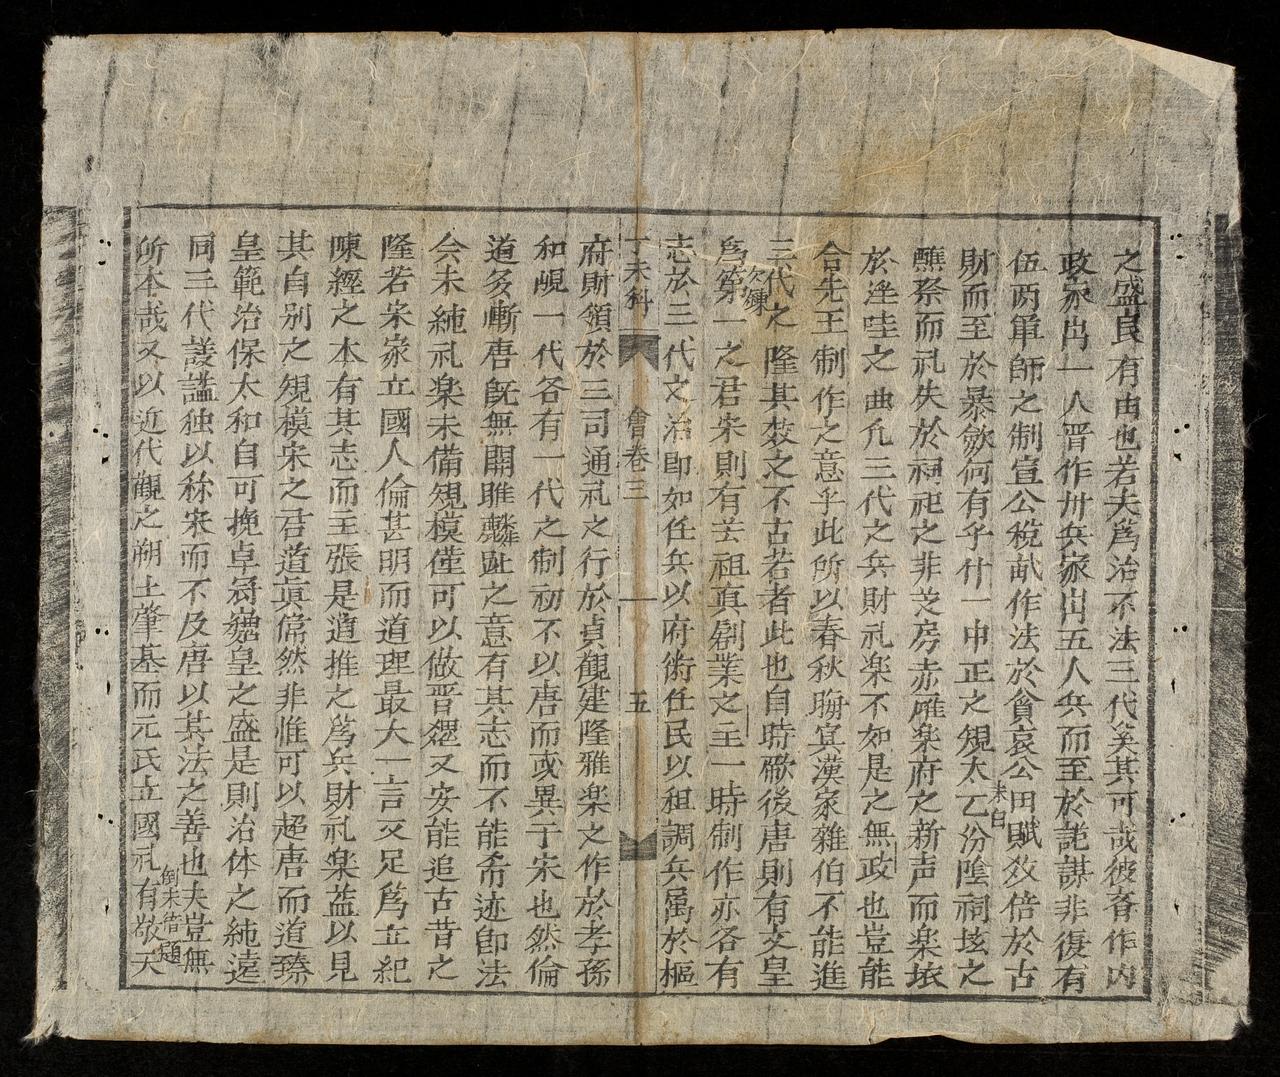 之盛良有由也若夫爲治不法三代奚其可哉彼齊作内
政家出一人晋作州兵家出五人兵而至於詭謀非復有
伍两軍師之制宣公税畒作法於貪哀公田賦效倍於古
財而至於暴歛何有乎什一中正之規太乙汾陰祠垓之
未白
醮祭而礼失於祠祀之非芝房赤鴈楽府之新声而楽
於淫哇之曲凢三代之兵財礼楽不如是之無政也豈能
合先王制作之意乎此所以春秋聊寞漢家雜伯不能進
三代之隆其效之不古若者此也自時厥後唐則有文皇
爲第一之君宋則有芸祖真剏業之主一時制作亦各有
次陳
志於三代文治即如任兵以府術任民以租調兵属於樞
丁未科 會卷三 五
府財領於三司通礼之行於貞觀建隆雅楽之作於孝孫
和峴一代各有一代之制初不以唐而或異于宋也然倫
道多慚唐既無關雎麟趾之意有其志而不能希迹即法
尖未純礼楽未備規模僅可以做晋又安能追古昔之
隆若宋家立國人倫甚明而道理最大一言又足爲立紀
陳經之本有其志而主張是道推之爲兵財礼楽盖以見
其自别之規模宋之君道真偹然非惟可以超唐而道臻
皇範治保太和自可挽卓冠皇之盛是則治体之純遠
同三代謢謚独以称宋而不及唐以其法之善也夫豈無
倒末借題
所本哉又以近代觀之朔土肇基而元氏立國礼有敬天